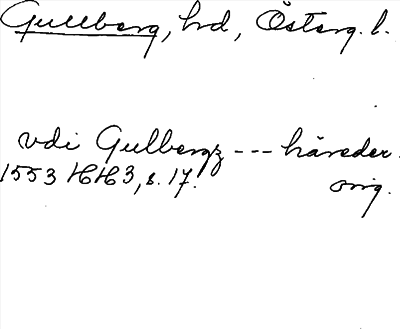 Gullberg, hd, Österg. l.
vdi Gulbergz --- häreder.
1553 HH 3, s. 17. orig.